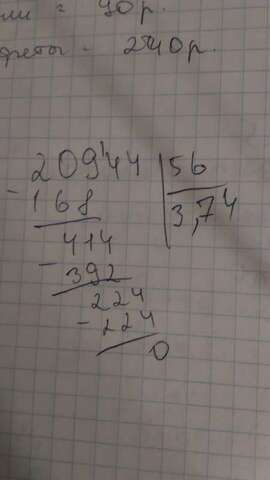 = 90 р.
- 2540 р.
209'44 | 56
- 168 | 3,74
414
- 392
224
- 224
0